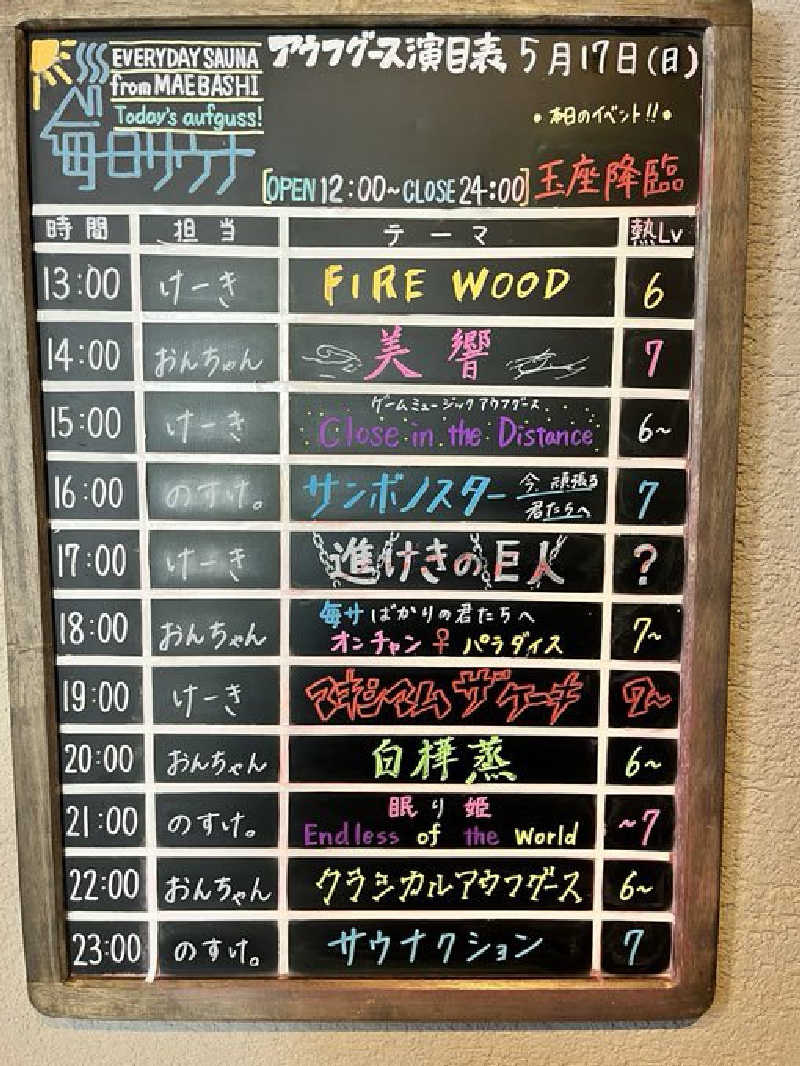 EVERYDAY SAUNA
from MAEBASHI
Today's aufguss!
毎日サウナ
アウフグース演目表 5月17日(日)
•本日のイベント!!•
[OPEN 12:00~CLOSE 24:00] 玉座降臨
時間 担当 テーマ 熱Lv
13:00 けーき FIRE WOOD 6
14:00 おんちゃん 美響 7
ゲームミュージックアウフグース
15:00 けーき Close in the Distance 6~
16:00 のすけ。 サンボノスター 今、頑張る君たちへ 7
17:00 けーき 進けきの巨人 ?
毎サばかりの君たちへ
18:00 おんちゃん オンチャン♀パラダイス 7~
19:00 けーき マキシマムザケーキ 7~
20:00 おんちゃん 白樺蒸 6~
眠り姫
21:00 のすけ。 Endless of the World ~7
22:00 おんちゃん クラシカルアウフグース 6~
23:00 のすけ。 サウナクション 7